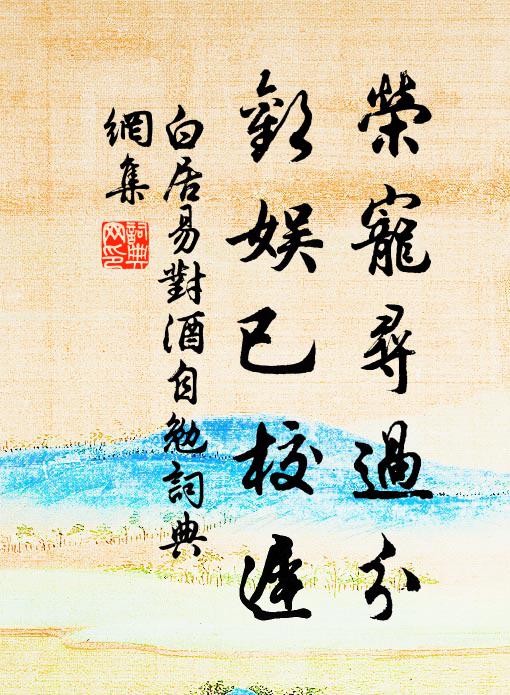 榮寵尋過分
歡娛已校遲
白居易對酒自勉詞典
網集
詞典
網印